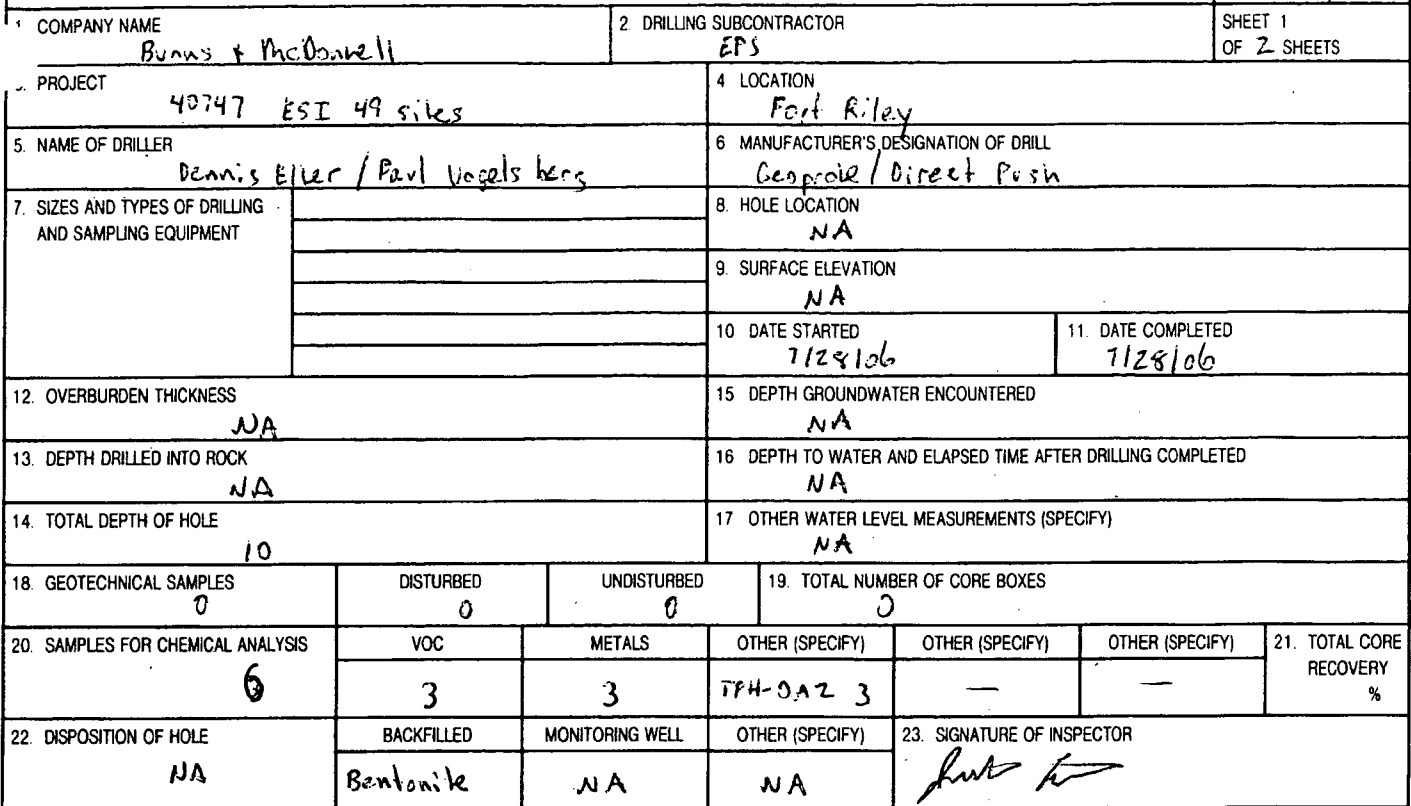 1. COMPANY NAME
Burns & McDonnell
2. DRILLING SUBCONTRACTOR
EPS
SHEET 1
OF 2 SHEETS
PROJECT
40747 ESI 49 sites
4 LOCATION
Fort Riley
5. NAME OF DRILLER
Dennis / Paul Vogelsberg
6 MANUFACTURER'S DESIGNATION OF DRILL
Geoprobe / Direct Push
7. SIZES AND TYPES OF DRILLING
AND SAMPLING EQUIPMENT
8. HOLE LOCATION
NA
9. SURFACE ELEVATION
NA
10 DATE STARTED
7/28/06
11. DATE COMPLETED
7/28/06
12. OVERBURDEN THICKNESS
NA
15 DEPTH GROUNDWATER ENCOUNTERED
NA
13. DEPTH DRILLED INTO ROCK
NA
16 DEPTH TO WATER AND ELAPSED TIME AFTER DRILLING COMPLETED
NA
14. TOTAL DEPTH OF HOLE
10
17 OTHER WATER LEVEL MEASUREMENTS (SPECIFY)
NA
18. GEOTECHNICAL SAMPLES
0
DISTURBED
0
UNDISTURBED
0
19. TOTAL NUMBER OF CORE BOXES
0
20. SAMPLES FOR CHEMICAL ANALYSIS
6
VOC
3
METALS
3
OTHER (SPECIFY)
3
OTHER (SPECIFY)
—
OTHER (SPECIFY)
—
21. TOTAL CORE
RECOVERY
%
22. DISPOSITION OF HOLE
NA
BACKFILLED
Bentonite
MONITORING WELL
NA
OTHER (SPECIFY)
NA
23. SIGNATURE OF INSPECTOR